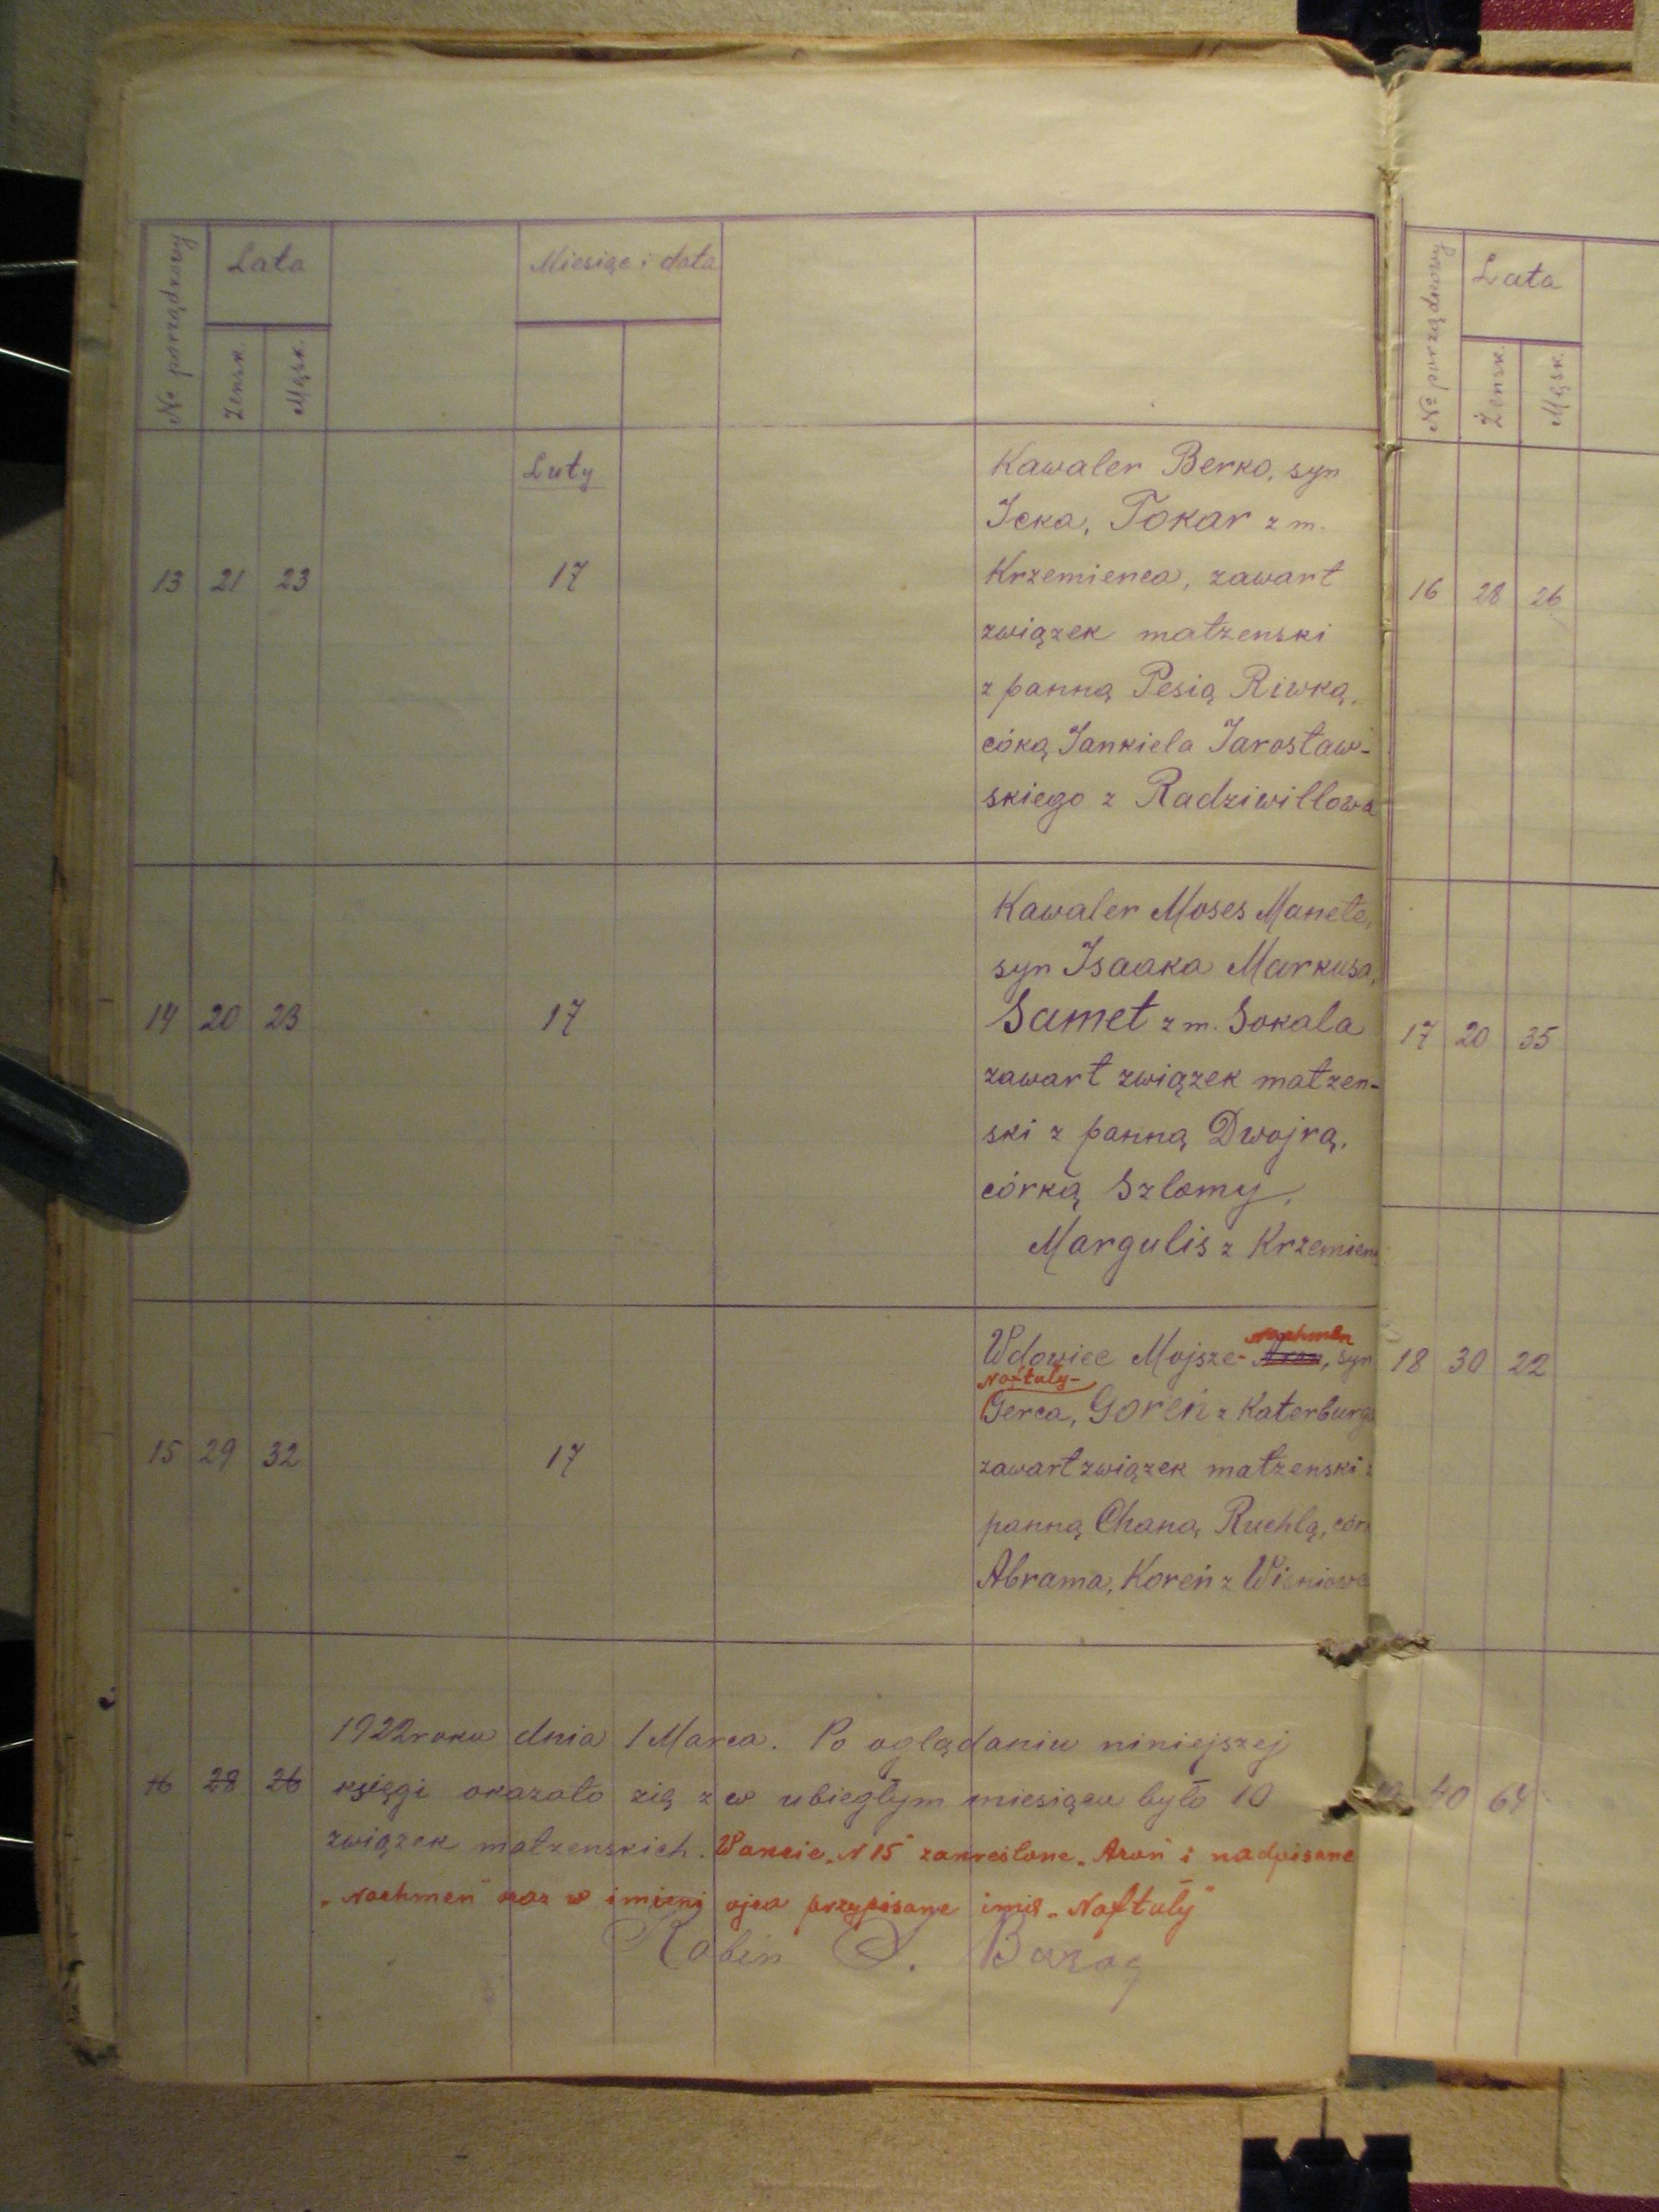 No porządkowy
Lata
Miesiąc i data
Żensk.
Męsk.
Luty
13 21 23 17
Kawaler Berko, syn
Icka, Tokar z m.
Krzemienca, zawart
związek matzenski
z panną Pesią Riwką,
córką Jankiela Jarostaw-
skiego z Radziwillowa
14 20 23 17
Kawaler Moses Manele,
syn Isaaka Markusa,
Samet z m. Sokala
zawart związek matzen-
ski z panną Dwojrą,
córką Szlomy,
Margulis z Krzemien
15 29 32 17
Nachmen
Wdowiec Mojsze-Aron, syn
Naftuly-
Gerca, Goren z Katerburga
zawart związek matzenski z
panną Chaną Ruchlą, cór
Abrama, Koreń z Wiśniowa
16 28 26
1922 roku dnia 1 Marca. Po oglądaniu niniejszej
księgi okazato zię z w ubiegtym miesiącu byto 10
związek matzenskich. W akcie „N 15" zakreślone „Aron" i nadpisane
„Nachmen" oraz w imieni ojca przypisane imię „Naftuly"
Rabin
No porządkowy
Lata
Żensk.
Męsk.
16 28 26
17 20 35
18 30 22
40 64